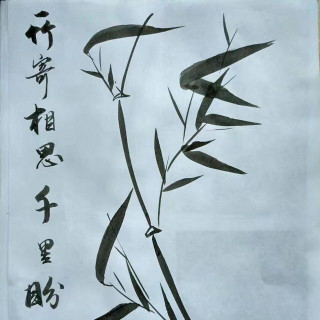 竹寄相思千里盼